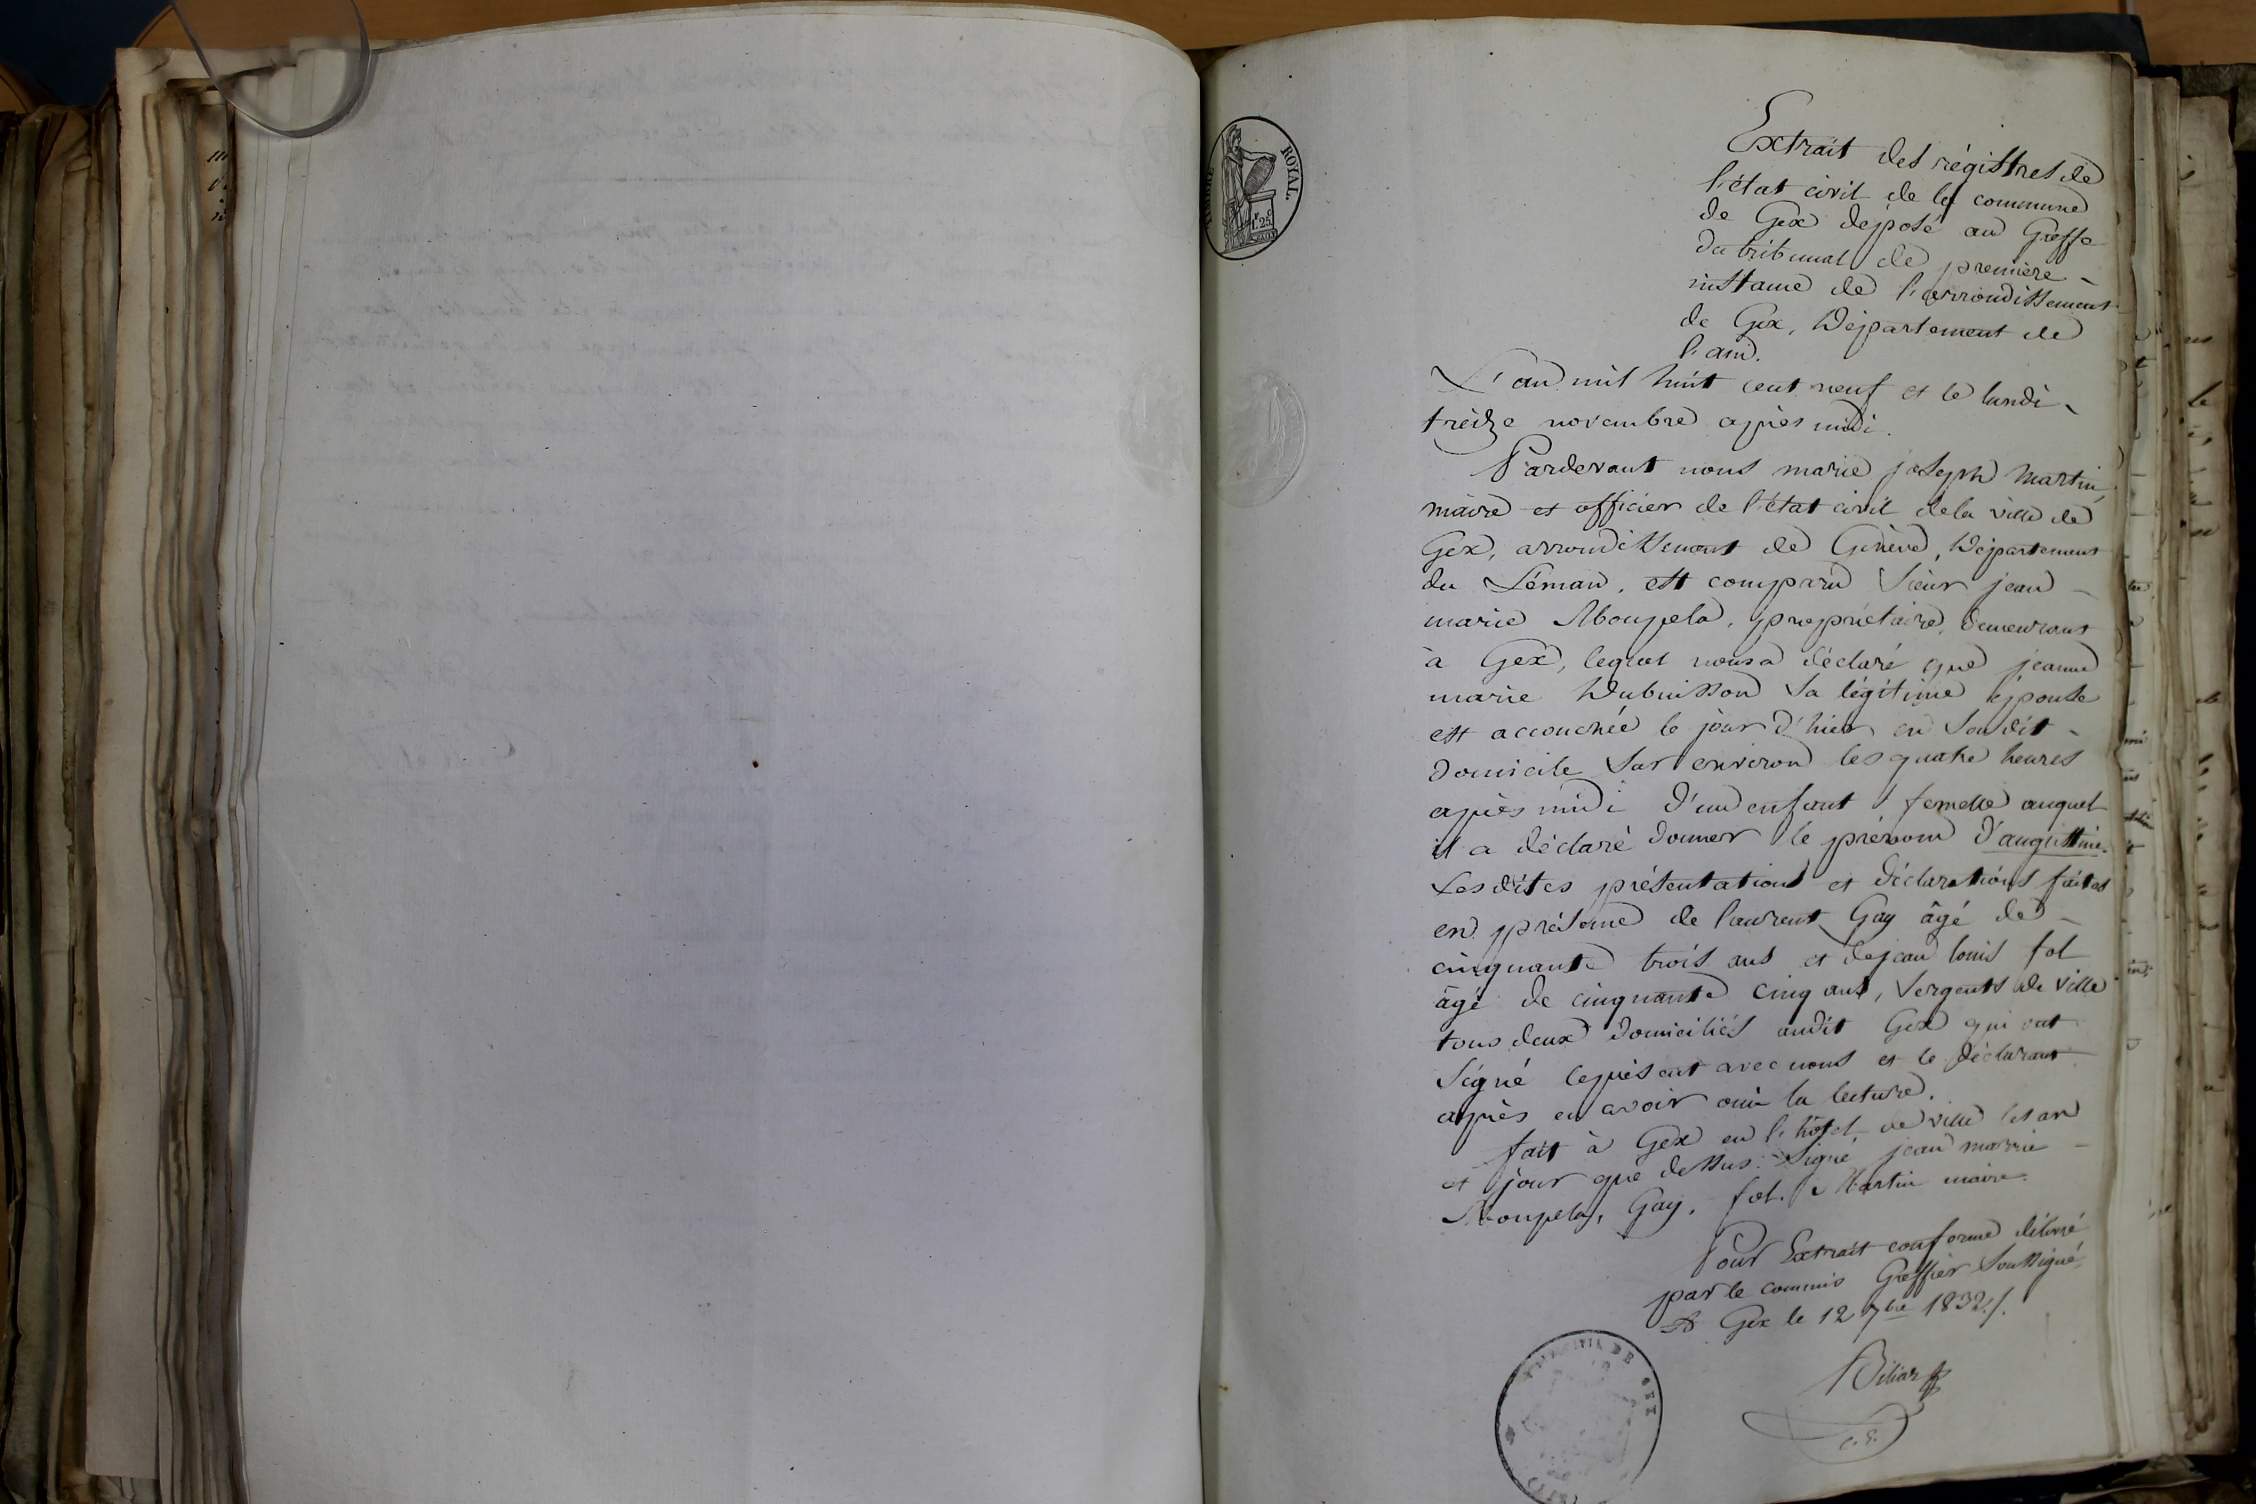 TIMBRE ROYAL.
1.F25C
Extrait des régistres de
l'état civil de la commune
de Gex déposé au Greffe
du tribunal de première
instance de l'arrondissement
de Gex, Département de
l'ain.
L'an mil huit cent neuf et le lundi
treize novembre après midi.
Pardevant nous marie joseph Martin,
maire et officier de l'état civil de la ville de
Gex, arrondissement de Genève, Département
du Léman, est comparu Sieur jean
marie propriétaire, demeurant
à Gex, lequel nous a déclaré que jeanne
marie Dubuisson sa légitime épouse
est accouchée le jour d'hier en son dit
domicile sur environ les quatre heures
après midi d'un enfant femelle auquel
il a déclaré donner le prénom d'augustine.
Les dites présentations et déclarations faites
en présence de laurent Gay âgé de
cinquante trois ans et de jean louis fol
âgé de cinquante cinq ans, sergents de ville
tous deux domiciliés audit Gex qui ont
signé le présent avec nous et le déclarant
après en avoir ouï la lecture.
fait à Gex en l'hôtel de ville les an
et jour que dessus. Signé jean marie
Gay, fol. Martin maire.
Pour Extrait conforme délivré
par le commis Greffier soussigné
A Gex le 12 7bre 1832./.
DE GEX